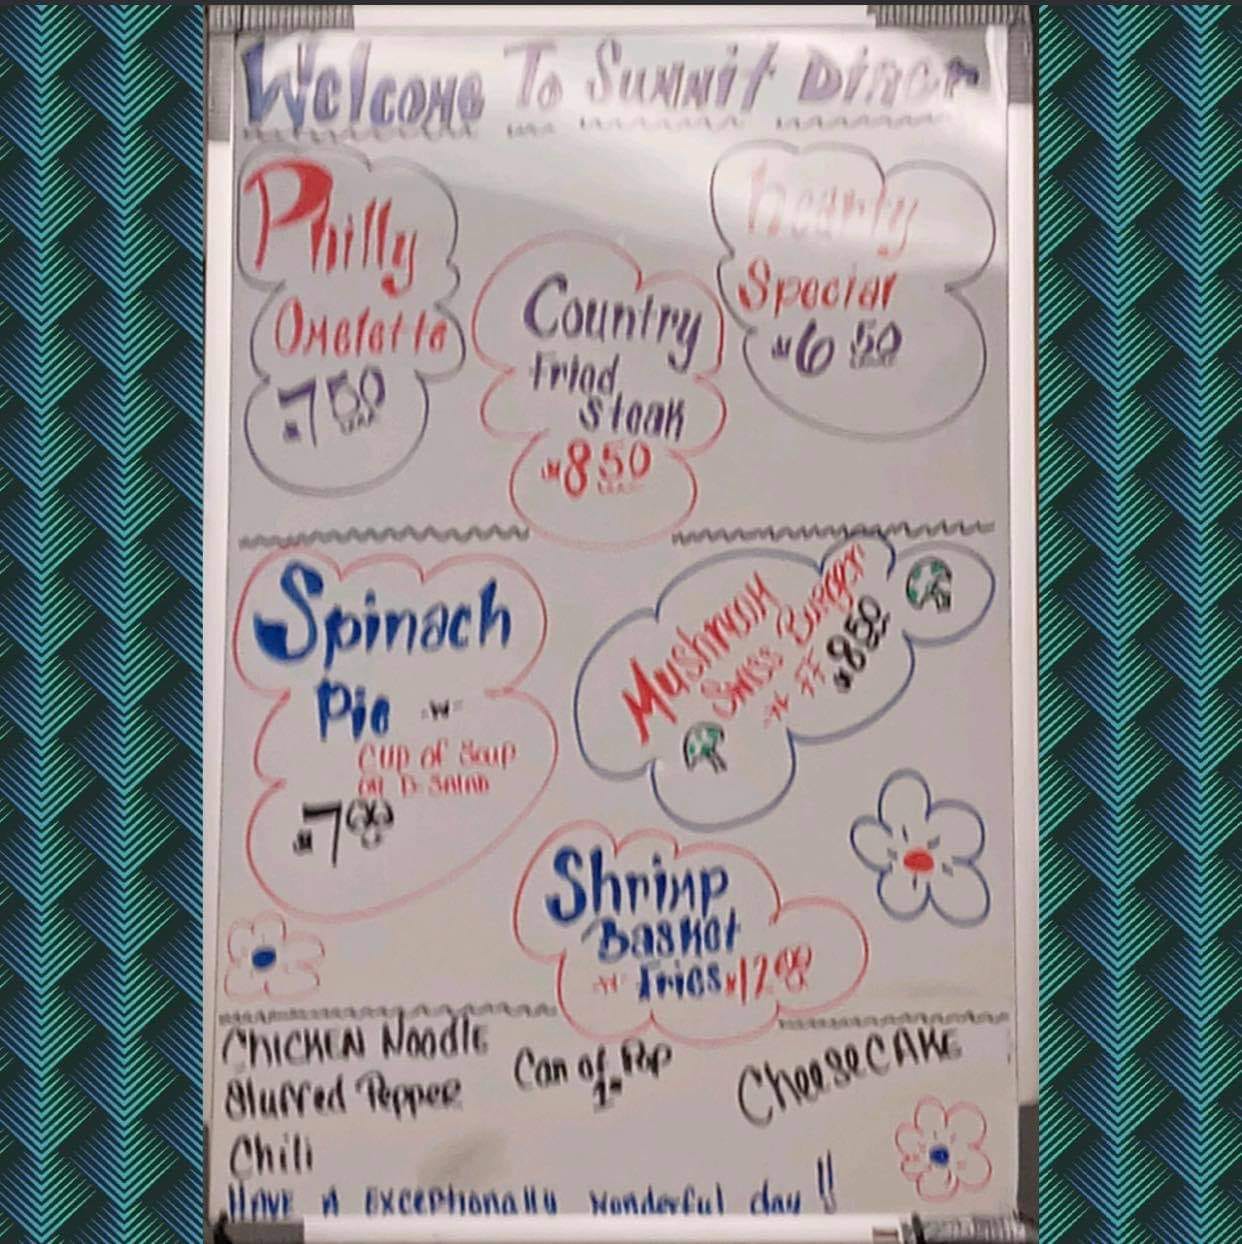 Welcome To Summit Diner
Philly
Omelette
$7.50
Country
Fried
Steak
$8.50
hearty
Special
$6.50
Spinach
Pie -w-
Cup of Soup
or D. Salad
$7.00
Mushroom
Swiss Burger
w FF $8.50
Shrimp
Basket
w Fries $12.00
Chicken Noodle
Stuffed Pepper
Chili
Can of Pop
1-
CheeseCAKE
HAVE A Exceptionally wonderful day!!